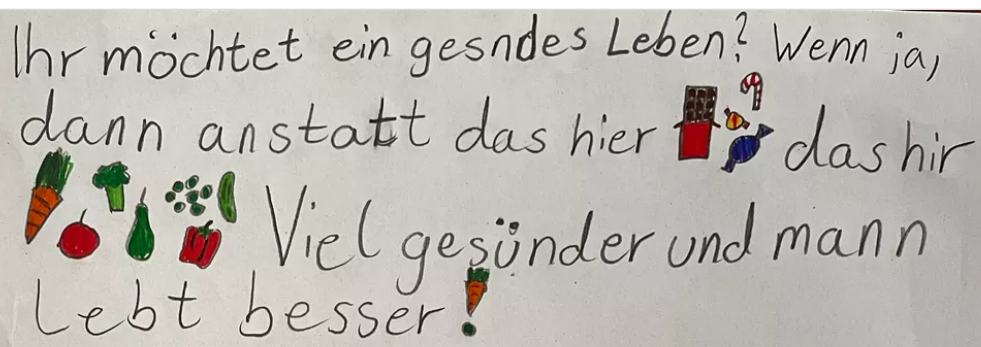 Ihr möchtet ein gesndes Leben? Wenn ja,
dann anstatt das hier das hir
Viel gesünder und mann
Lebt besser!